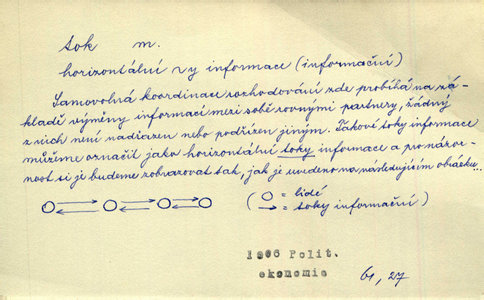 tok m.
horizontální ~y informace (informační)
Samovolná koordinace rozhodování zde probíhá na zá-
kladě výměny informací mezi sobě rovnými partnery, žádný
z nich není nadřazen nebo podřízen jiným. Takové toky informace
můžeme označit jako horizontální toky informace a pro názor-
nost si je budeme zobrazovat tak, jak je uvedeno na následujícím obrázku...
(O = lidé
→ = toky informační)
1966 Polit.
ekonomie
61, 27